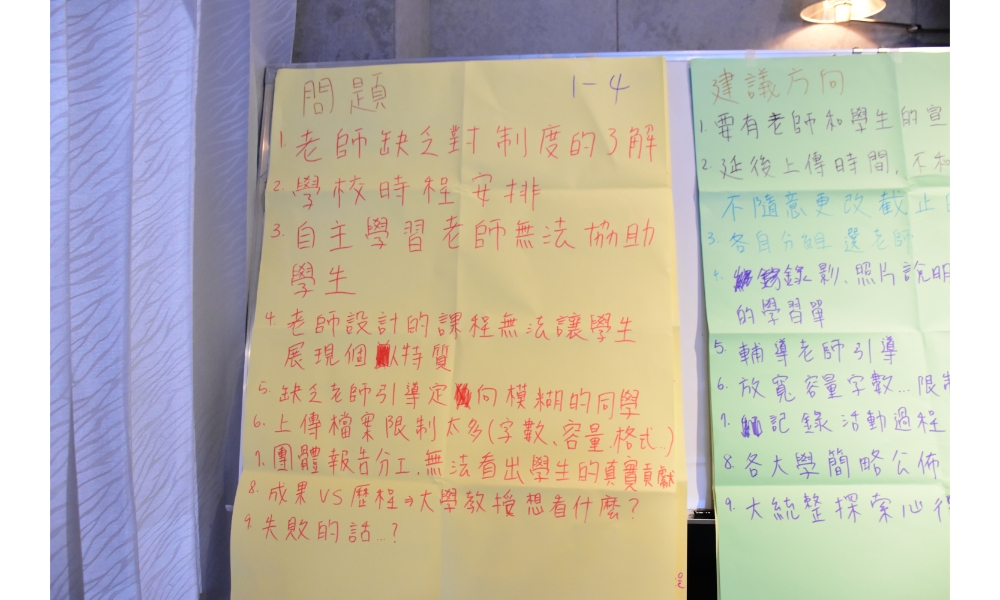 問題
1-4
1. 老師缺乏對制度的了解
2. 學校時程安排
3. 自主學習老師無法協助
學生
4. 老師設計的課程無法讓學生
展現個人特質
5. 缺乏老師引導定向模糊的同學
6. 上傳檔案限制太多(字數、容量.格式...)
7. 團體報告分工,無法看出學生的真實貢獻
8. 成果 VS 歷程→大學教授想看什麼?
9. 失敗的話...?
建議方向
1. 要有老師和學生的宣
2. 延後上傳時間,不和
不隨意更改截止
3. 各自分組選老師
4. 錄影、照片說明
的學習單
5. 輔導老師引導
6. 放寬容量字數...限制
7. 記錄活動過程
8. 各大學簡略公佈
9. 大統整探索心得